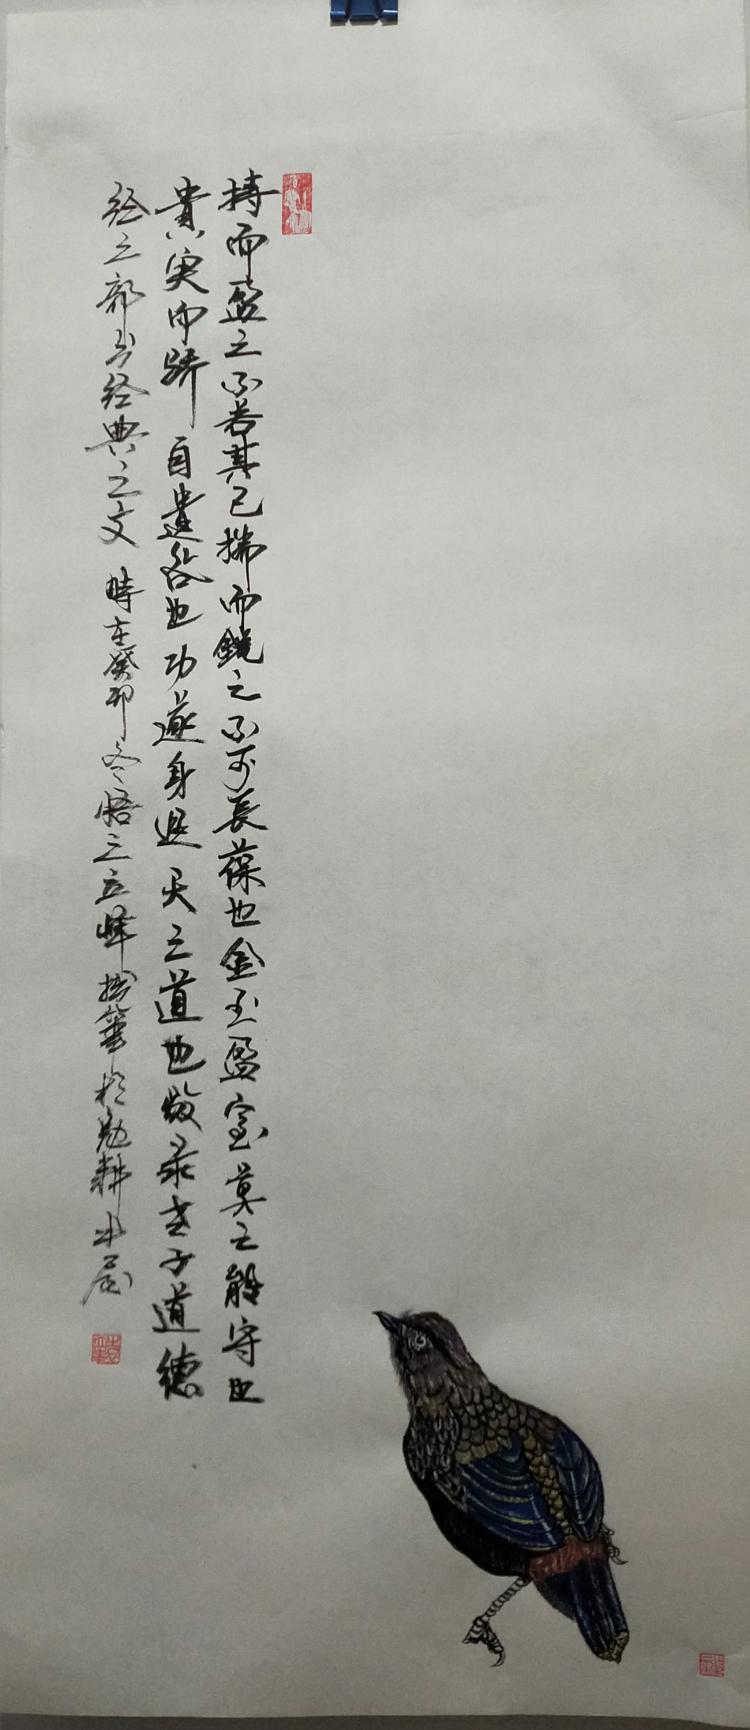 持而盈之不若其已揣而鋭之不可長葆也金玉盈室莫之能守也
貴富而驕自遺咎也功遂身退天之道也敬录老子道德
经之部分经典之文 時在癸卯冬 悟之立峰 於勉耕书屋